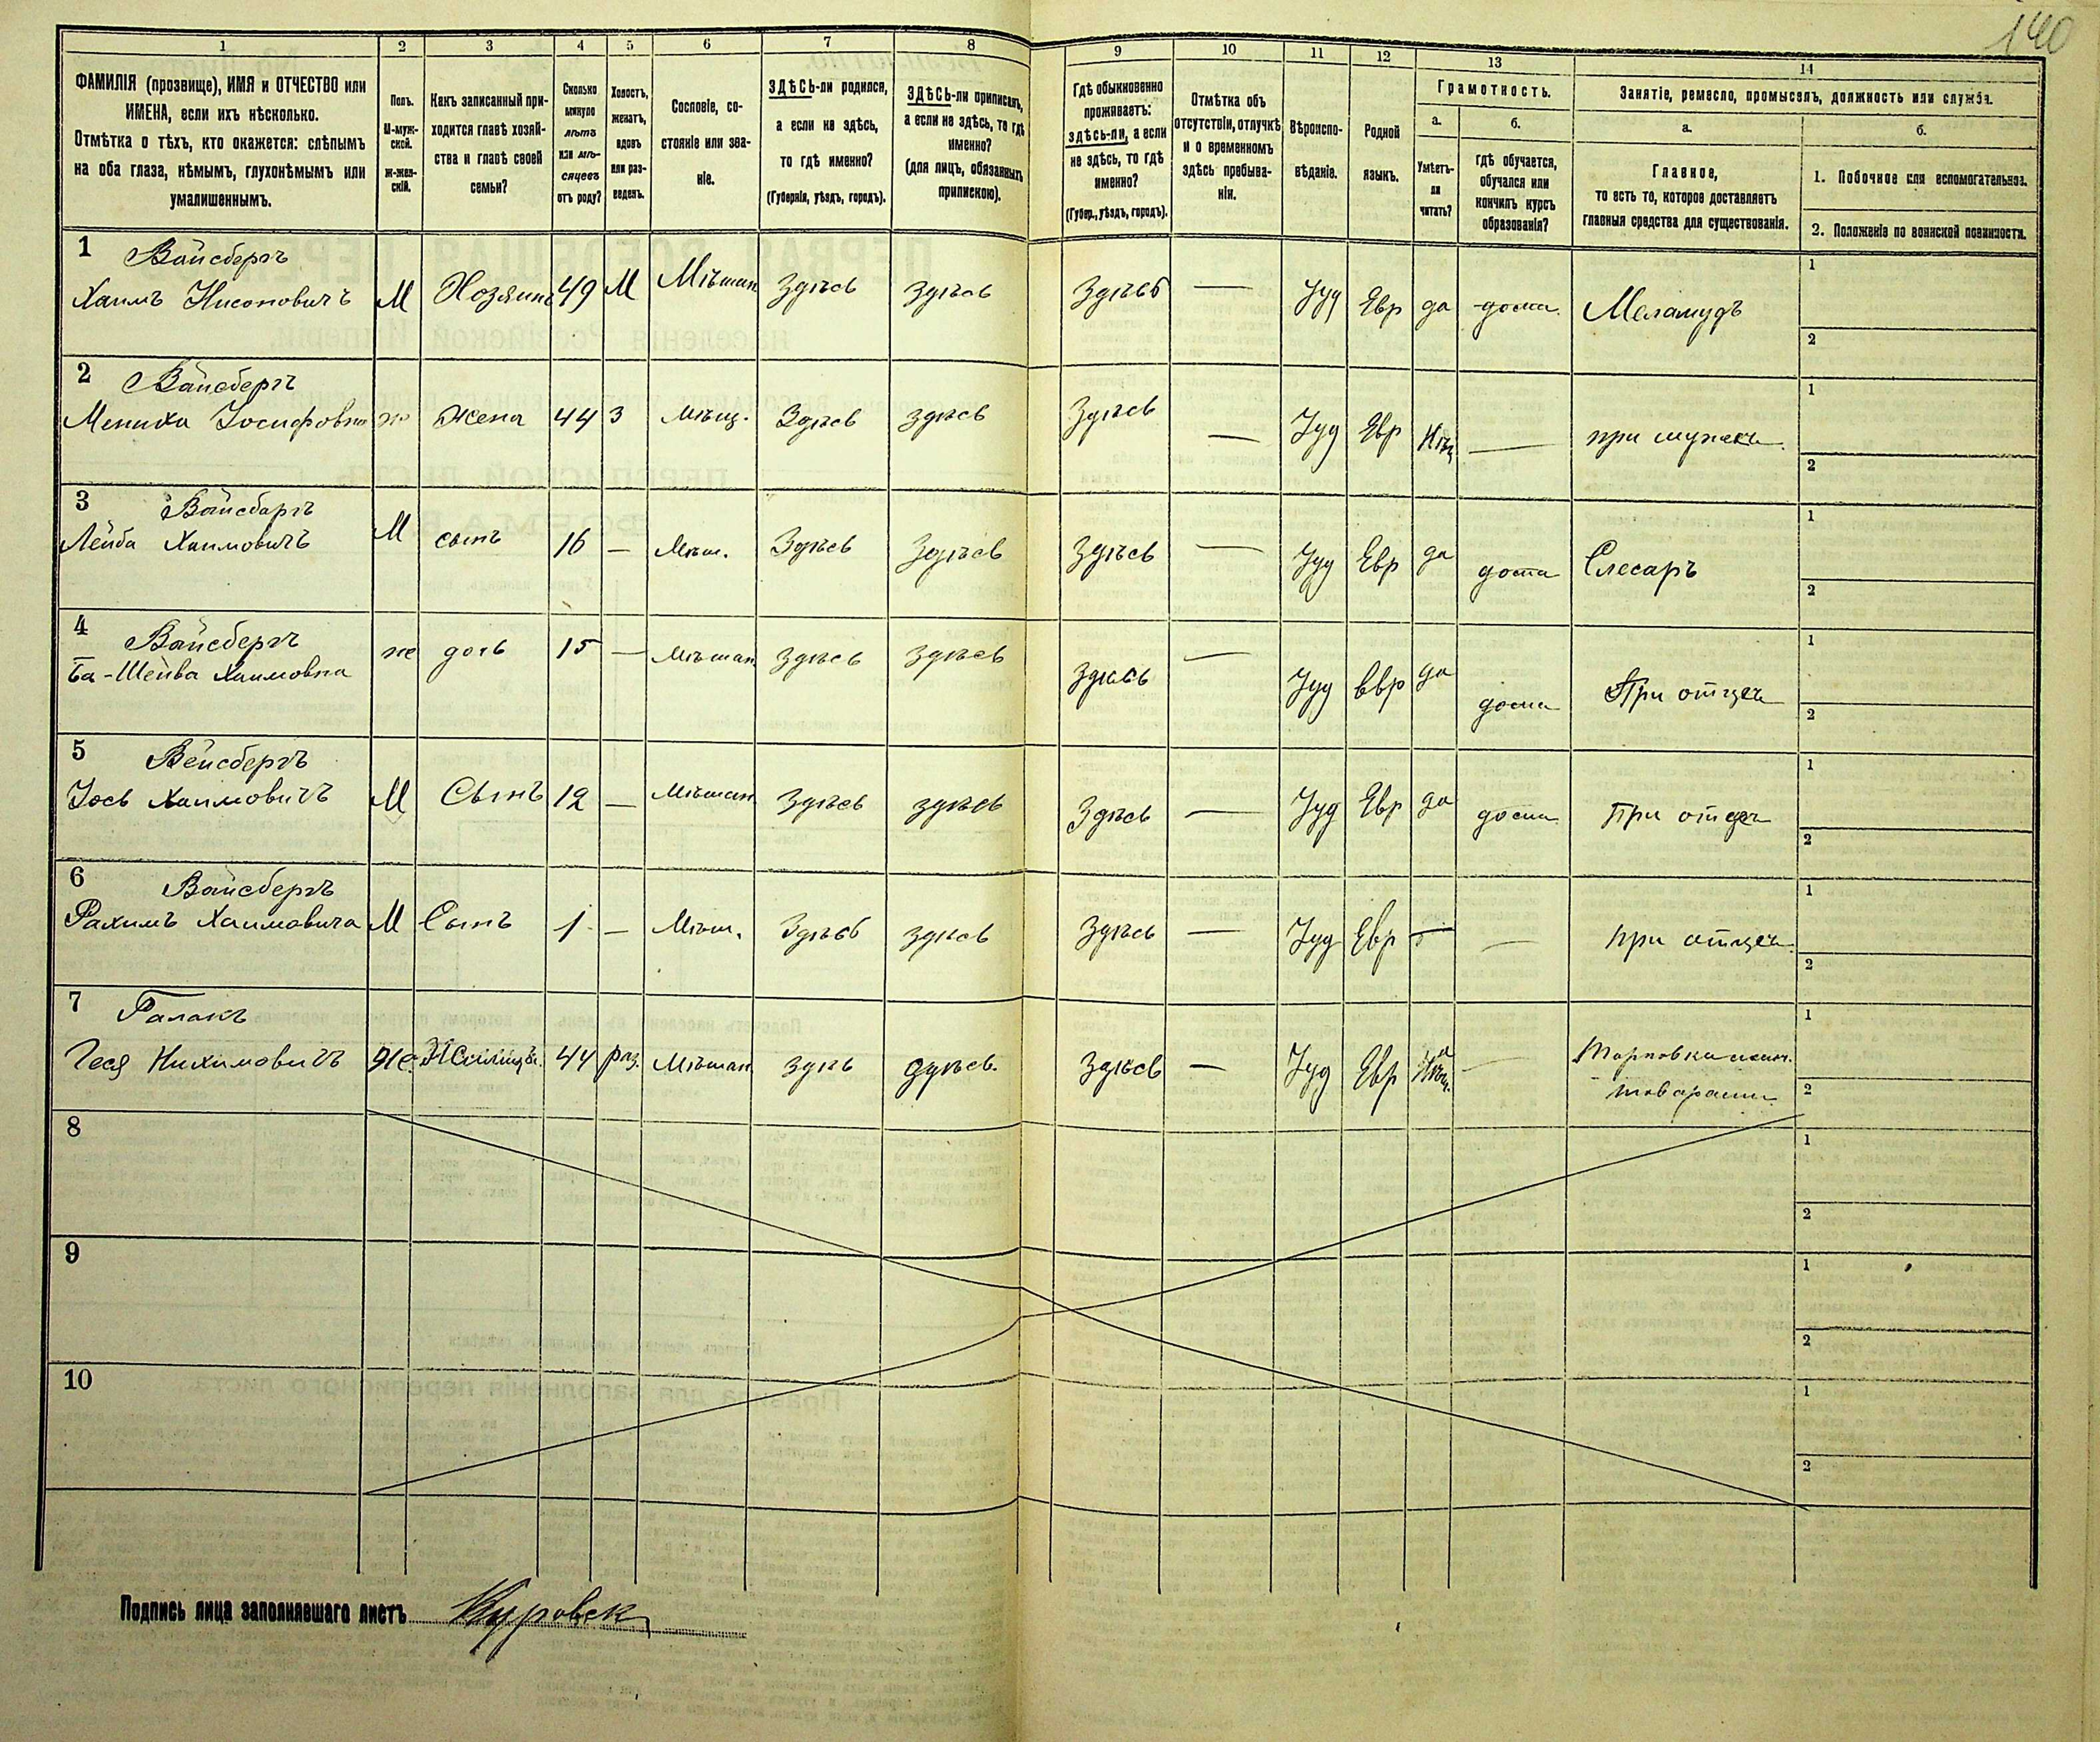 140
1 2 3 4 5 6 7 8 9 10 11 12 13 14
ФАМИЛІЯ (прозвище), ИМЯ и ОТЧЕСТВО или
ИМЕНА, если ихъ нѣсколько.
Отмѣтка о тѣхъ, кто окажется: слѣпымъ
на оба глаза, нѣмымъ, глухонѣмымъ или
умалишеннымъ.
Полъ.
М-муж-
ской.
Ж-жен-
скій.
Какъ записанный при-
ходится главѣ хозяй-
ства и главѣ своей
семьи?
Сколько
минуло
лѣтъ
или мѣ-
сяцевъ
отъ роду?
Холостъ,
женатъ,
вдовъ
или раз-
веденъ.
Сословіе, со-
стояніе или зва-
ніе.
ЗДѢСЬ-ли родился,
а если не здѣсь,
то гдѣ именно?
(Губернія, уѣздъ, городъ).
ЗДѢСЬ-ли приписанъ,
а если не здѣсь, то гдѣ
именно?
(для лицъ, обязанныхъ
припискою).
Гдѣ обыкновенно
проживаетъ:
здѣсь-ли, а если
не здѣсь, то гдѣ
именно?
(Губер., уѣздъ, городъ).
Отмѣтка объ
отсутствіи, отлучкѣ
и о временномъ
здѣсь пребыва-
ніи.
Вѣроиспо-
вѣданіе.
Родной
языкъ.
Грамотность.
а.
Умѣетъ-
ли
читать?
б.
гдѣ обучается,
обучался или
кончилъ курсъ
образованія?
Занятіе, ремесло, промыселъ, должность или служба.
а.
Главное,
то есть то, которое доставляетъ
главныя средства для существованія.
б.
1. Побочное или вспомогательное.
2. Положеніе по воинской повинности.
1 Вайсбергъ
Хаимъ Нисоновичъ М Хозяинъ 49 М Мѣщан Здѣсь здѣсь Здѣсь — Іуд Евр да дома Меламудъ
1
2
2 Вайсбергъ
Мениха Іосифовна ж Жена 44 З Мѣщ. Здѣсь здѣсь Здѣсь — Іуд Евр Нѣт — при мужѣ
1
2
3 Вайсбаргъ
Лейба Хаимовичъ М сынъ 16 — Мѣщ. Здѣсь Здѣсь Здѣсь — Іуд Евр да дома Слесаръ
1
2
4 Вайсбергъ
Ба-Шейва Хаимовна же дочь 15 — Мѣщан здѣсь здѣсь здѣсь — Іуд Евр да дома При отцѣ
1
2
5 Вейсбергъ
Іось Хаимовичъ М Сынъ 12 — Мѣщан Здѣсь здѣсь Здѣсь — Іуд Евр да дома При отцѣ
1
2
6 Вайсбергъ
Рахимъ Хаимовича М Сынъ 1 — Мѣщ. Здѣсь здѣсь Здѣсь — Іуд Евр — — при отцѣ
1
2
7
44 раз. Мѣщан здѣсь Здѣсь — Іуд Евр —
1
2
8
1
2
9
1
2
10
1
2
Подпись лица заполнявшаго листъ